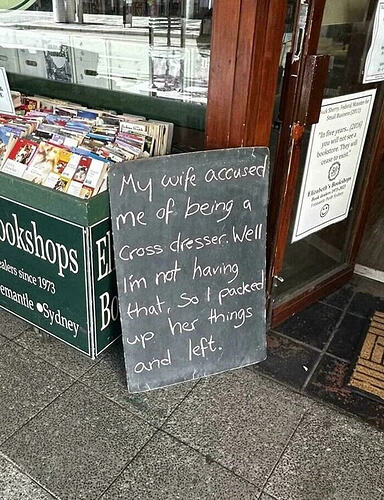 My wife accused
me of being a
cross dresser. Well
I'm not having
that, so I packed
up her things
and left.
ookshops
ealers since 1973
emantle • Sydney
El
Bo
Nick Sherry, Federal Minister for
Small Business (2011)
"In five years... (2016)
you will not see a
bookstore. They will
cease to exist."
Elizabeth's Bookshops
Book dealers 1973-2023
Fremantle Perth Sydney